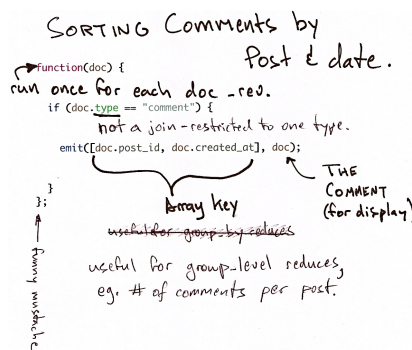 SORTING Comments by
Post & date.
function(doc) {
run once for each doc_rev.
if (doc.type == "comment") {
not a join-restricted to one type.
emit([doc.post_id, doc.created_at], doc);
THE
COMMENT
(for display)
}
};
Array key
useful for group_by reduces
useful for group_level reduces,
eg. # of comments per post.
funny mustache